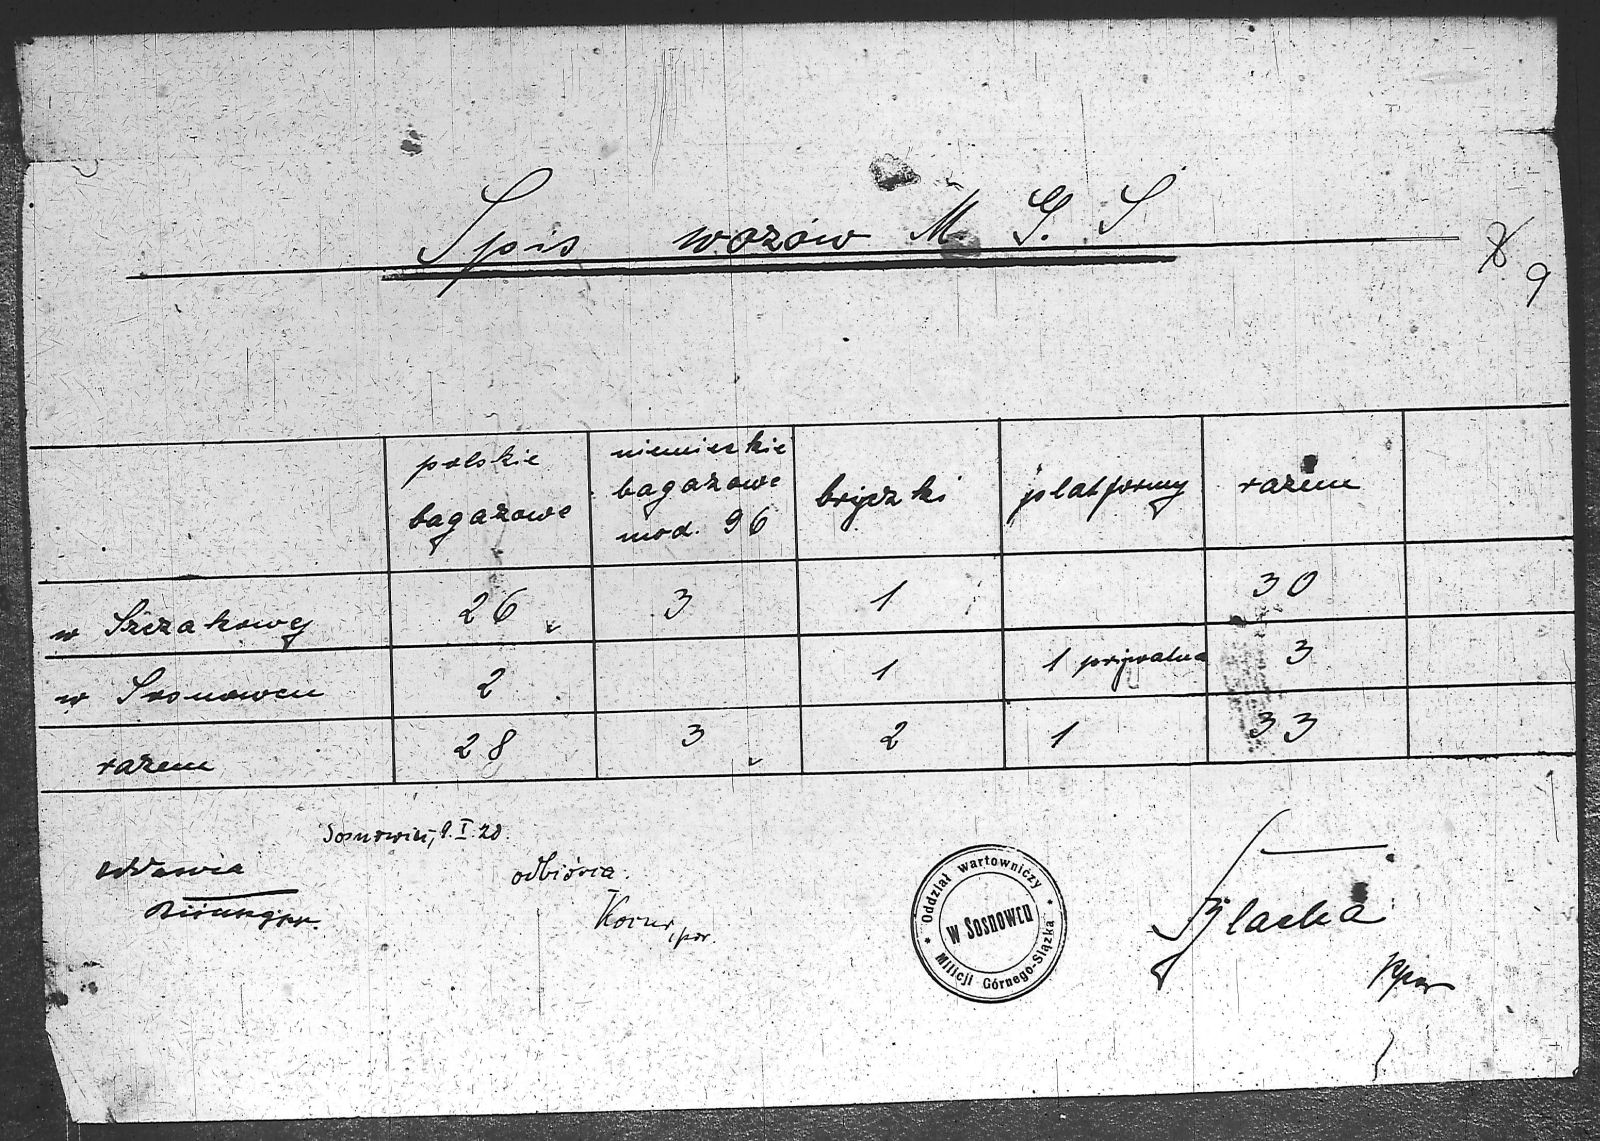 Spis wozów M. G. S
9
polskie bagażowe
niemieckie bagażowe mod. 96
bryczki
platformy
razem
w Szczakowej 26 3 1 30
w Sosnowcu 2 1 1 prywatna 3
razem 28 3 2 1 33
Sosnowiec, 9.I.20.
oddawca
odbiorca.
por.
Oddział wartowniczy
w Sosnowcu
Milicji Górnego-Slązka